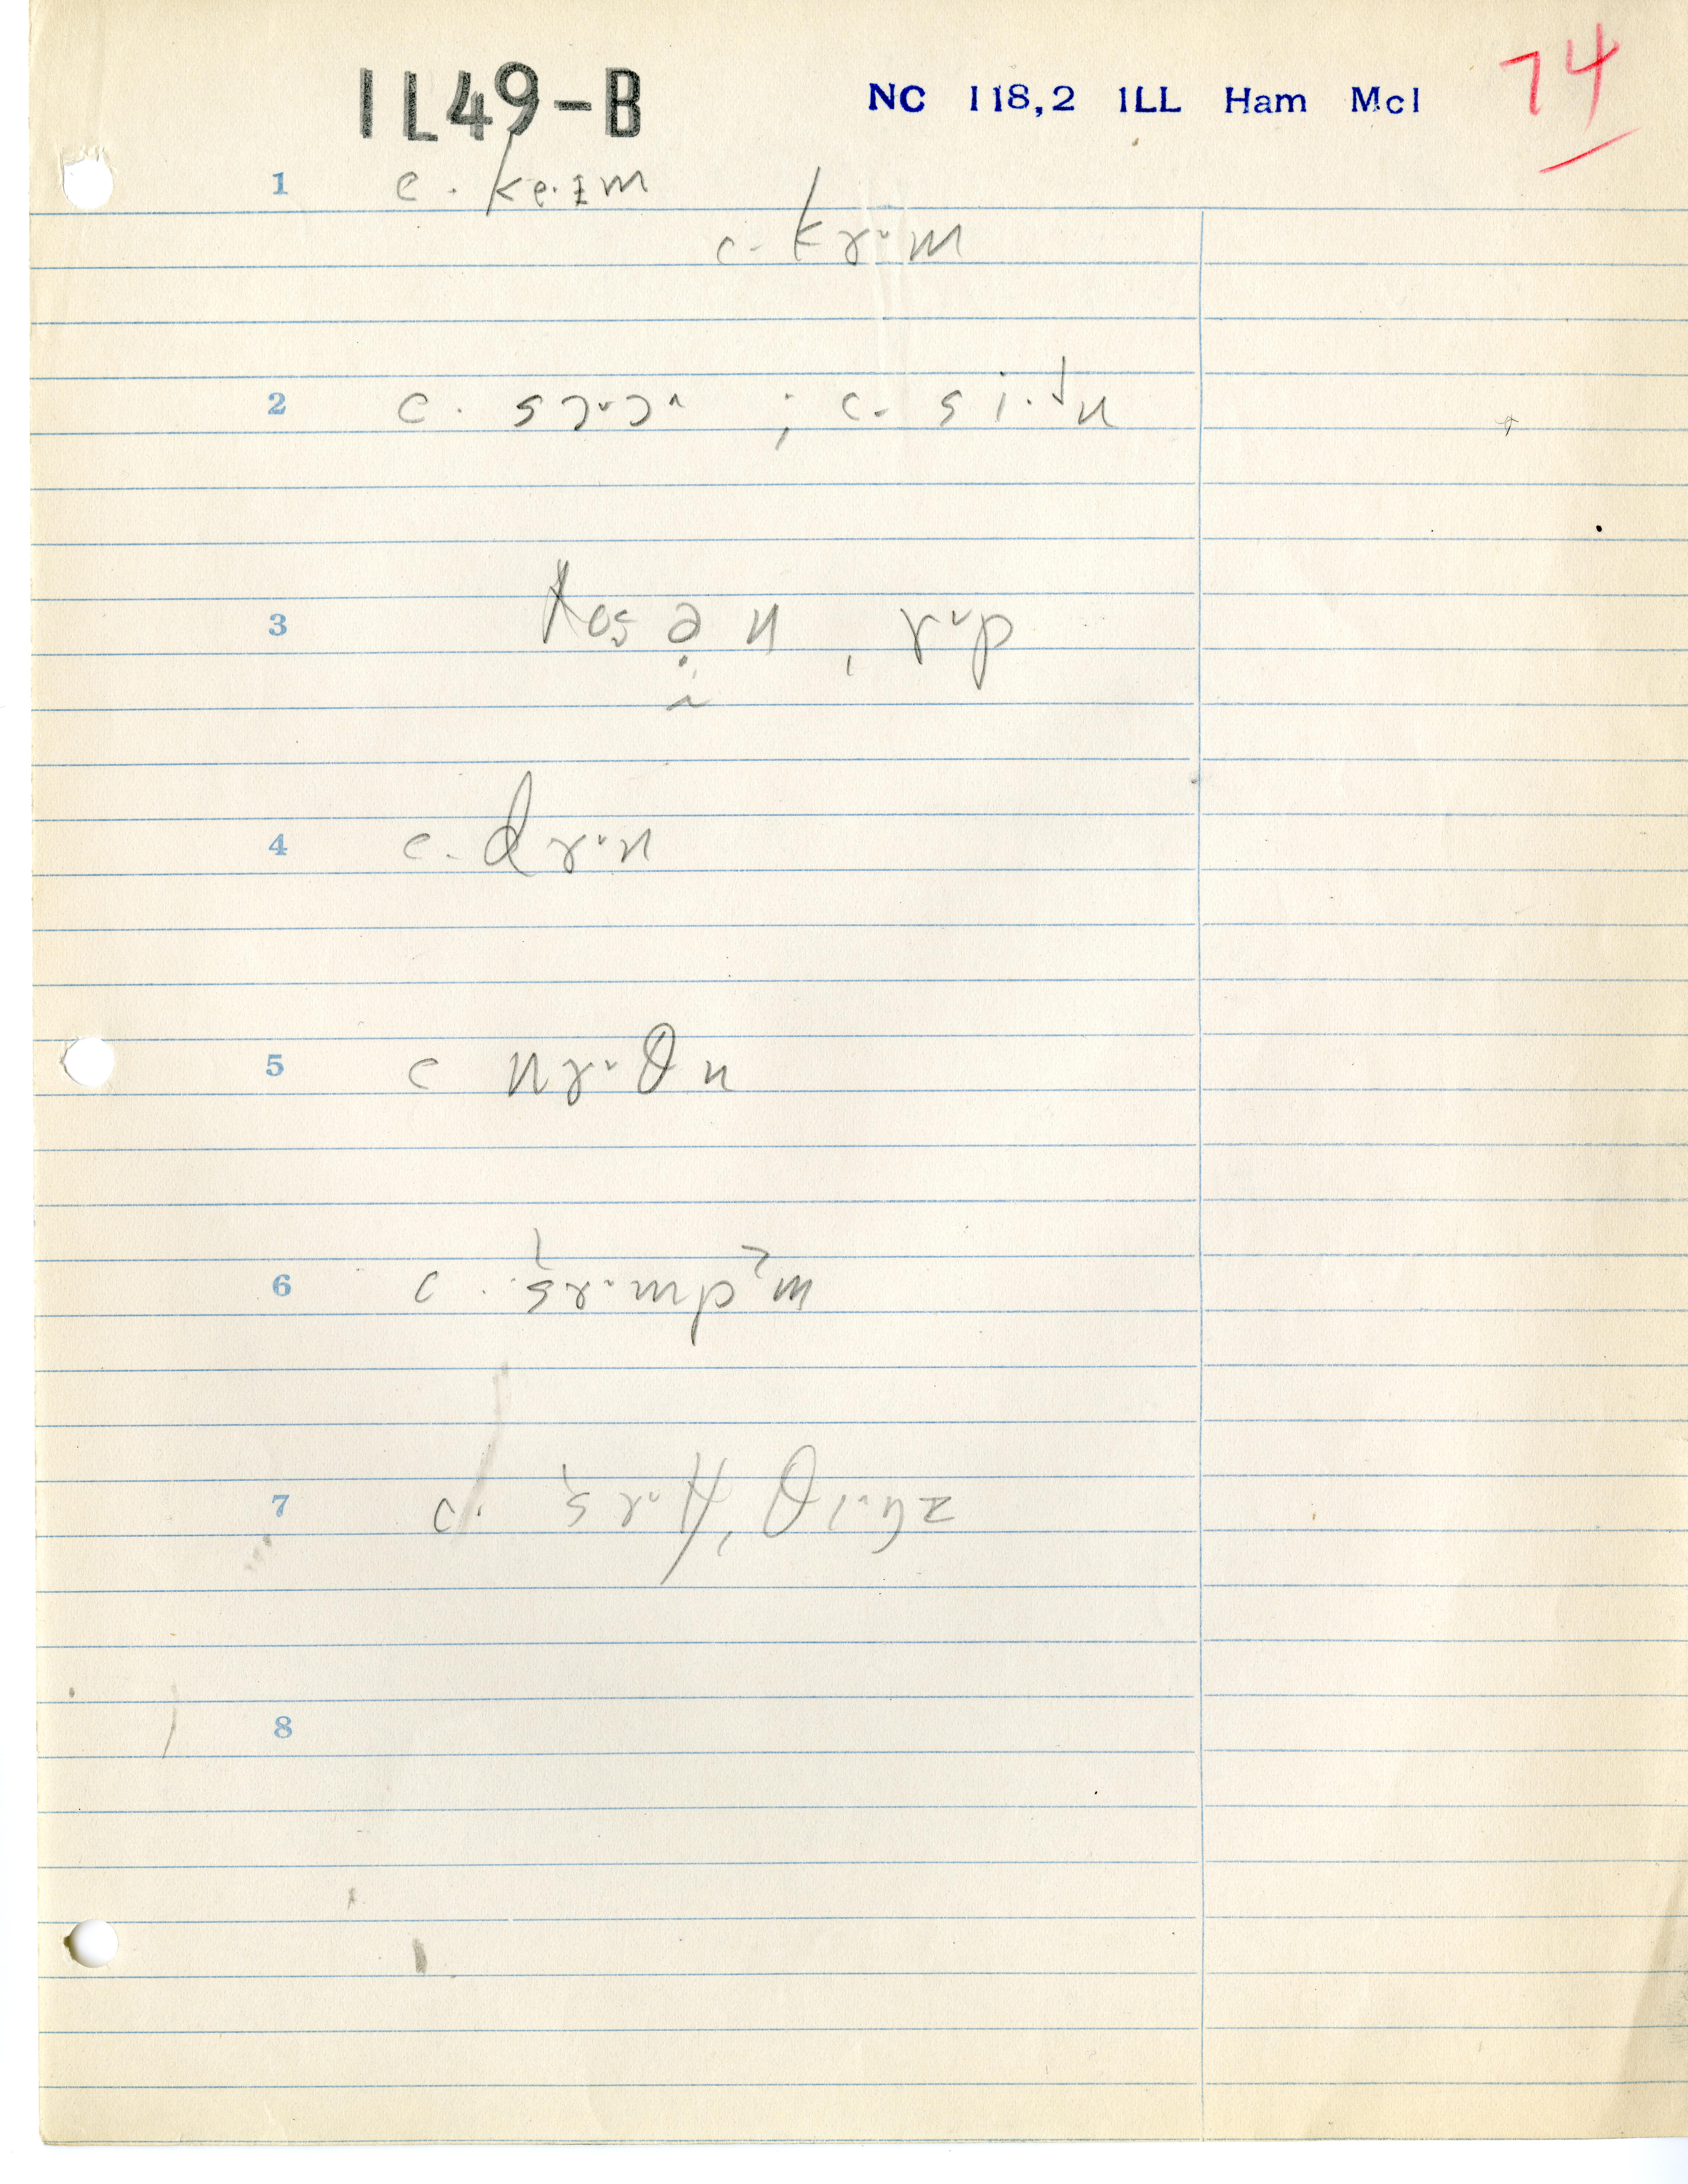 IL49-B NC 118,2 ILL Ham McI 74
1 c. ke.ɪm
c. kɤ˅m
2 c. sɔ˅ɔ˄ ; c. si.dn
3 ɤ˅p
4 c. dɤ˅n
5 c nɤ˅θn
6 c. šɤ˅mpˀm
7 c. θɪ˅ŋz
8